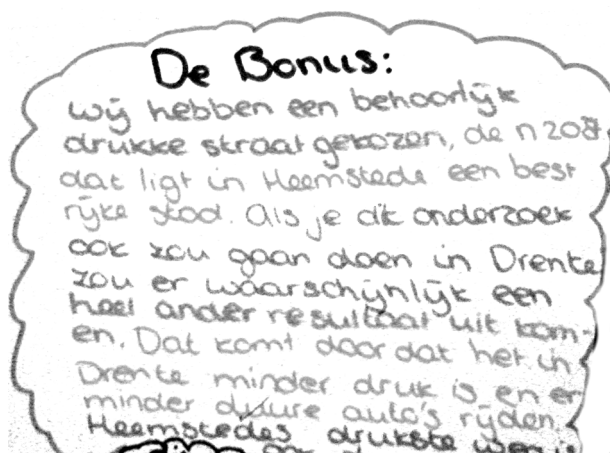 De Bonus:
Wij hebben een behoorlijk
drukke straat gekozen, de n208,
dat ligt in Heemstede een best
rijke stad. Als je dit onderzoek
ook zou gaan doen in Drente
zou er waarschijnlijk een
heel ander resultaat uit kom-
en. Dat komt door dat het in
Drente minder druk is en er
minder duure auto's rijden.
Heemstedes drukste weg is